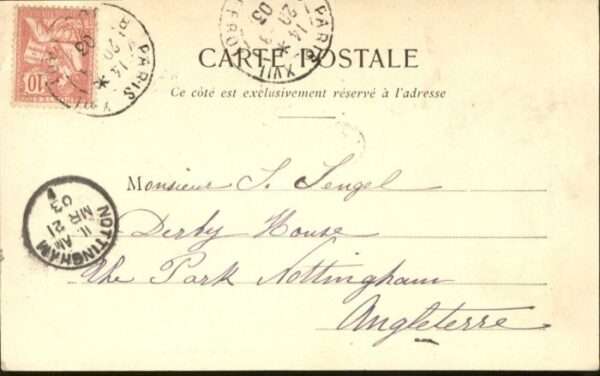 PARIS
14
20
03
PARIS
14
20
03
XVII
10
CARTE POSTALE
Ce côté est exclusivement réservé à l'adresse
Monsieur S. Sengel
Derby House
The Park Nottingham
Angleterre
NOTTINGHAM
11. AM
MR 21
03